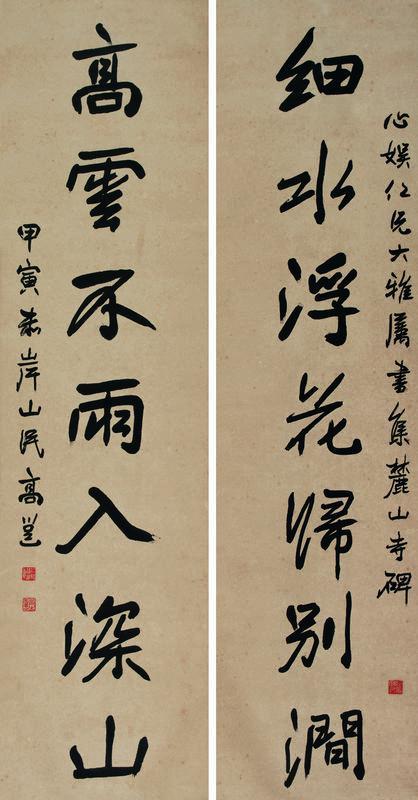 心娛仁兄大雅屬書集麓山寺碑
細水浮花歸別澗
高雲不雨入深山
甲寅赤岸山民高邕